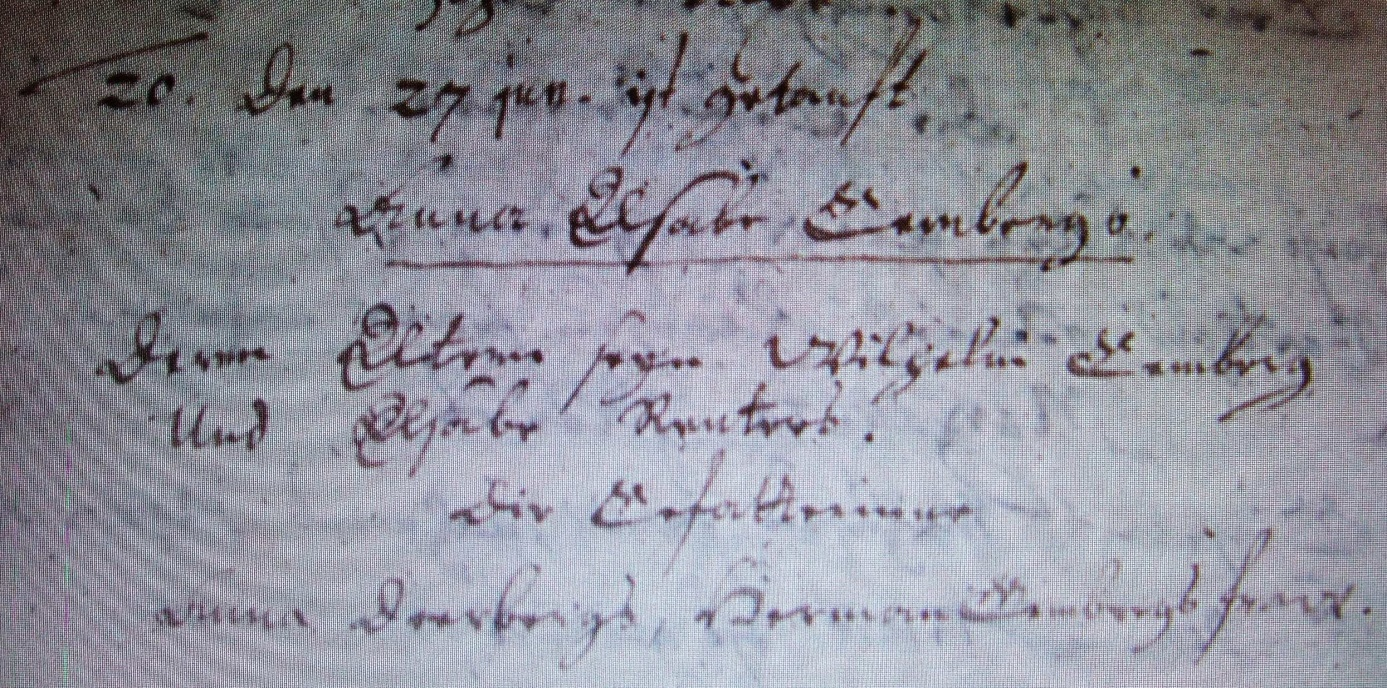 20. Den 27 jun. ist getauft
Anna Elsabe Gembergs.
Deren Eltern seyn Wilhelm Gemberg
Und Elsabe Reuters.
die Gefatterinne
Anna Herman Gembergs fraw.